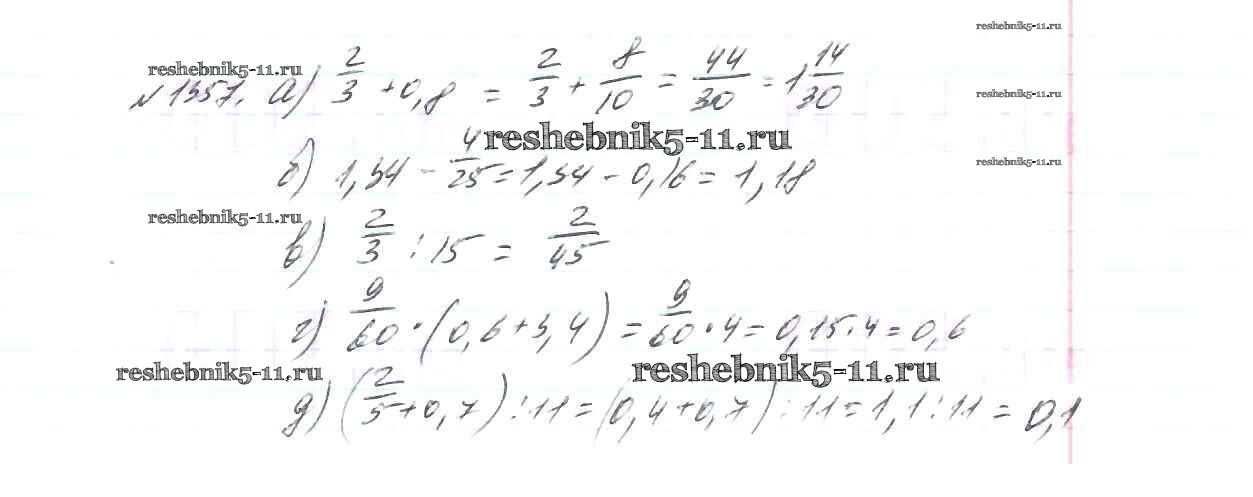 reshebnik5-11.ru
reshebnik5-11.ru
№1357. а) 2/3 + 0,8 = 2/3 + 8/10 = 44/30 = 1 14/30
reshebnik5-11.ru
reshebnik5-11.ru
б) 1,34 - 4/25 = 1,34 - 0,16 = 1,18
reshebnik5-11.ru
reshebnik5-11.ru
в) 2/3 : 15 = 2/45
г) 9/60 · (0,6 + 3,4) = 9/60 · 4 = 0,15 · 4 = 0,6
reshebnik5-11.ru
reshebnik5-11.ru
д) (2/5 + 0,7) : 11 = (0,4 + 0,7) : 11 = 1,1 : 11 = 0,1